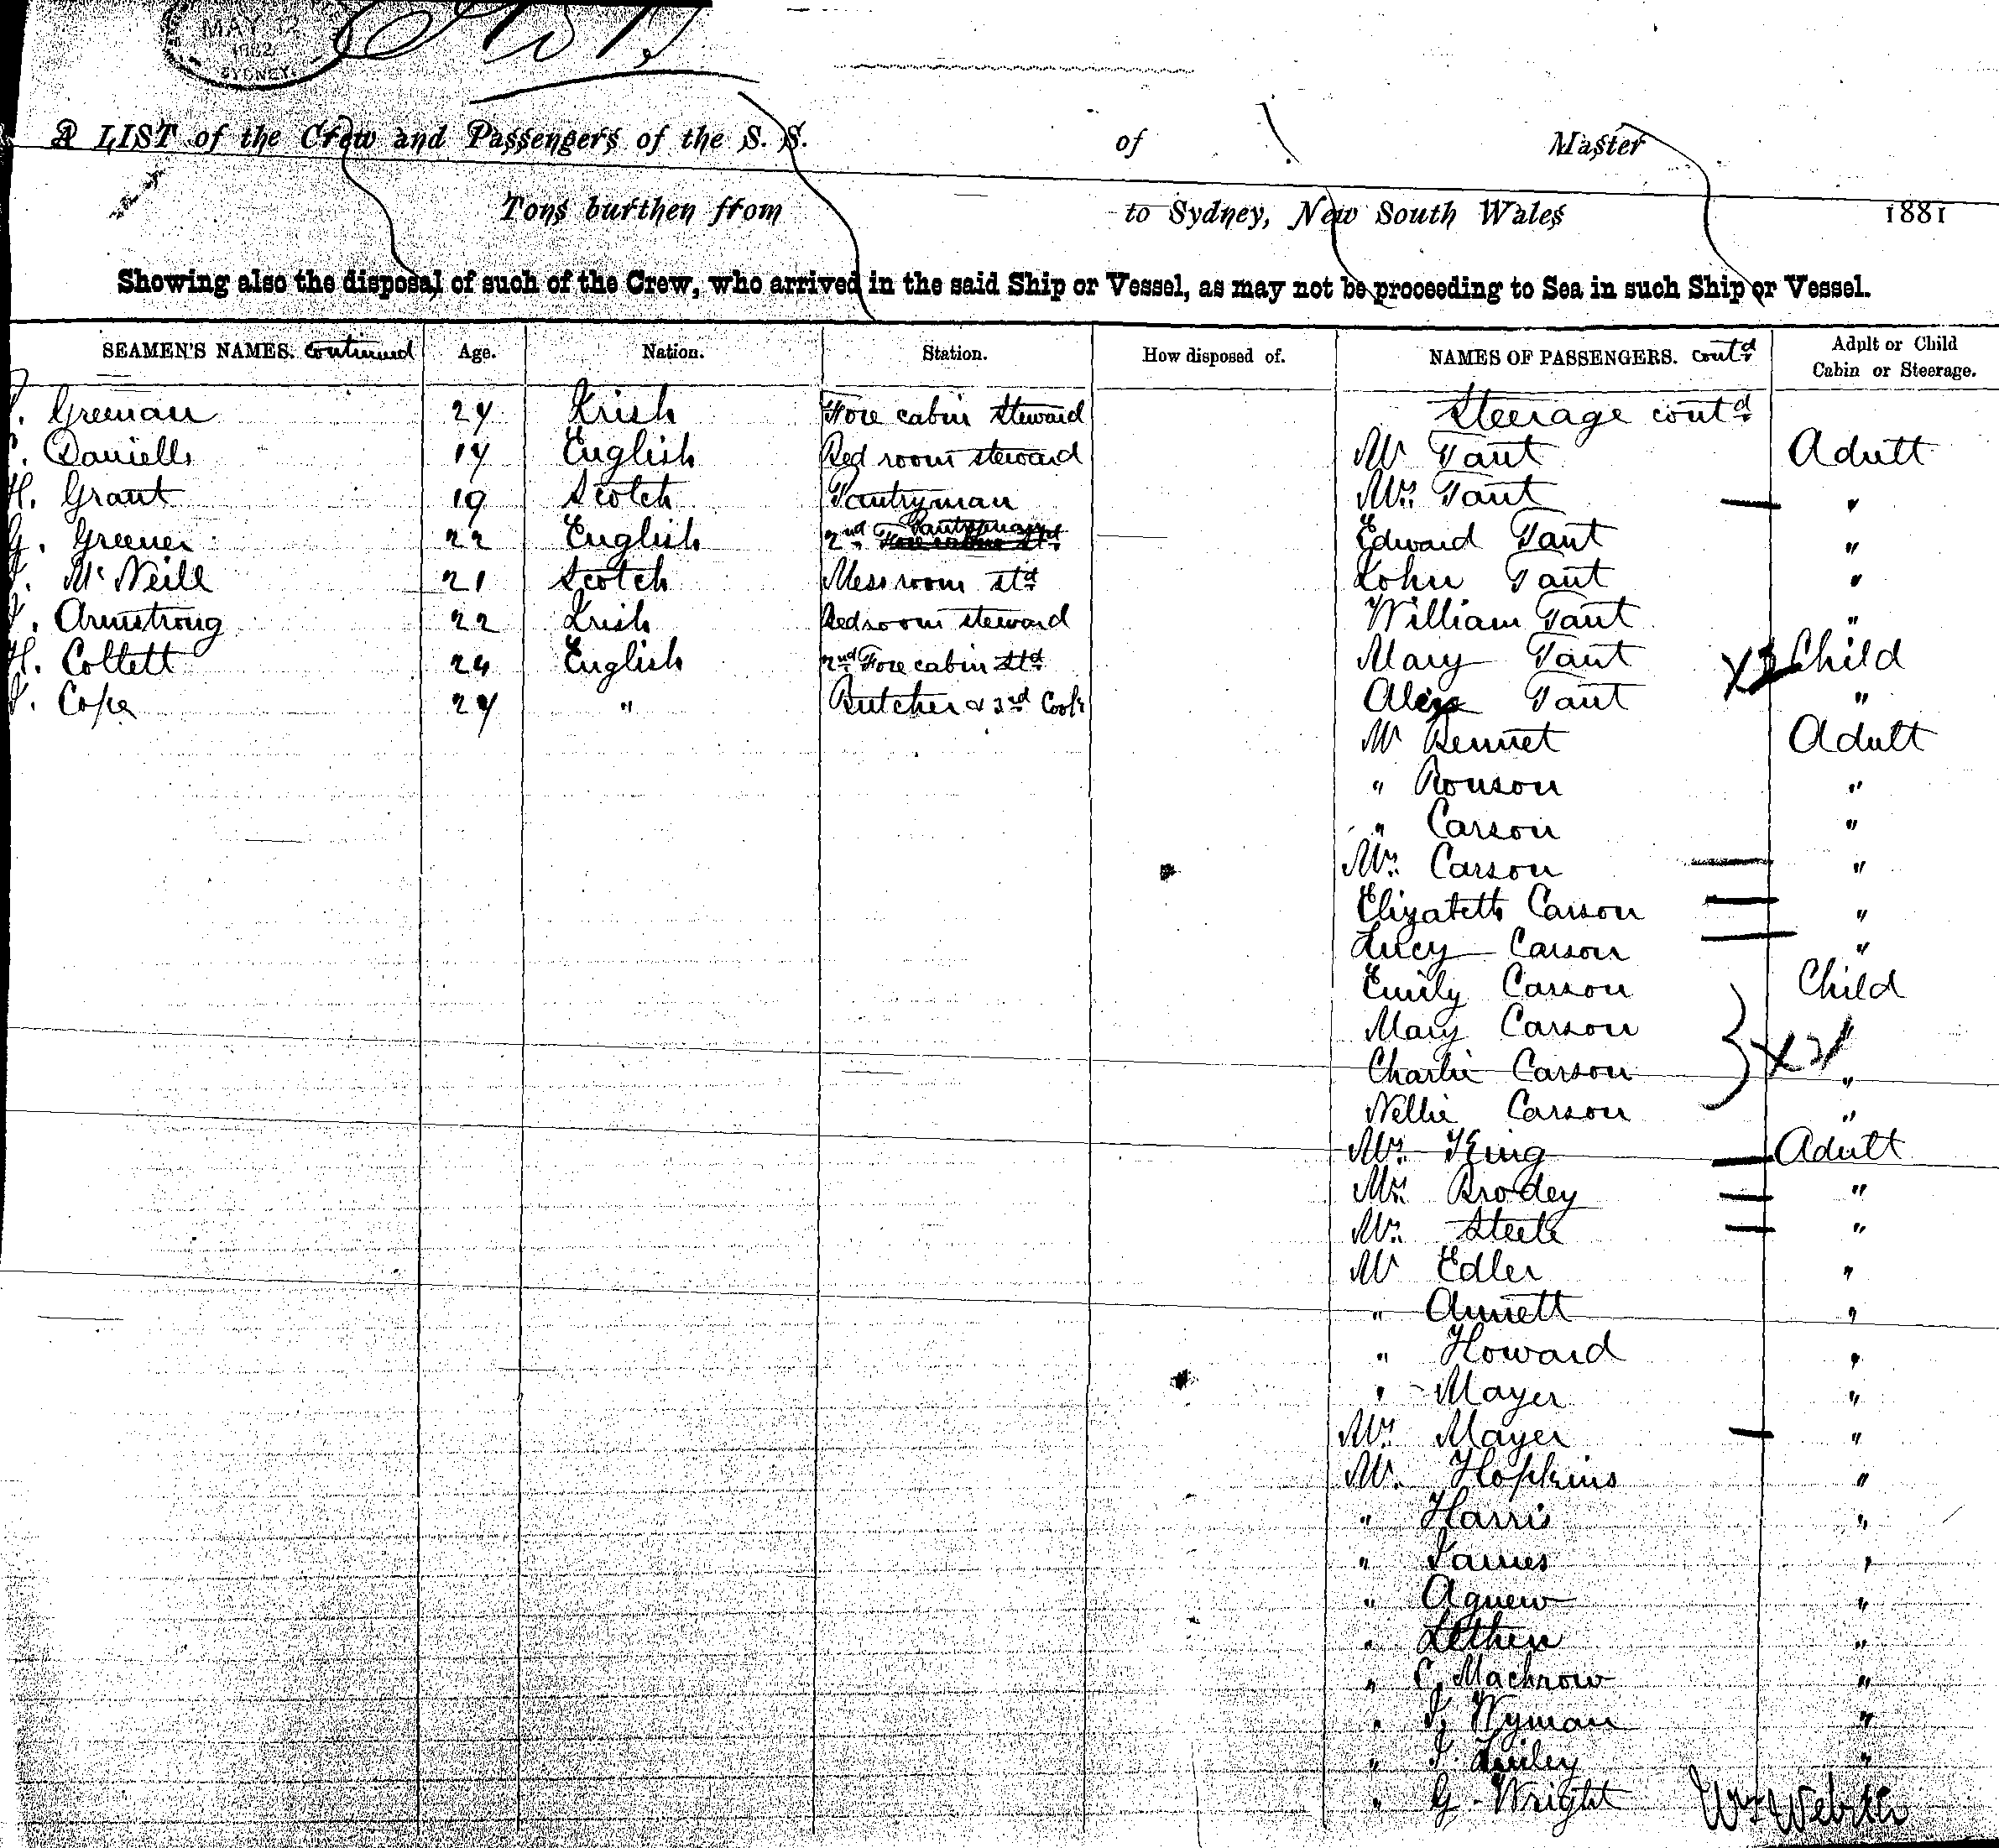 MAY 12
1882
SYDNEY
A LIST of the Crew and Passengers of the S. S. of Master
Tons burthen from to Sydney, New South Wales 1881
Showing also the disposal of such of the Crew, who arrived in the said Ship or Vessel, as may not be proceeding to Sea in such Ship or Vessel.
SEAMEN'S NAMES. Continued Age. Nation. Station. How disposed of. NAMES OF PASSENGERS. Contd Adult or Child Cabin or Steerage.
Greenan 24 Irish Fore cabin Steward Steerage contd
Daniells 14 English Bed room steward Mr Tant Adult
H. Grant 19 Scotch Pantryman Mrs Tant "
G. Greener 22 English 2nd Pantryman Edward Tant "
McNeill 21 Scotch Mess room std John Tant "
Armstrong 22 Irish Bedroom steward William Tant "
H. Collett 24 English 2nd Fore cabin Std Mary Tant Child
Cope 24 " Butcher & 2nd Cook Tant "
Mr Bennet Adult
" Ronson "
" Carson "
Mrs Carson "
Elizabeth Carson "
Lucy Carson "
Emily Carson Child
Mary Carson "
Charlie Carson "
Nellie Carson "
Mrs King Adult
Mrs Brodey "
Mrs Steele "
Mr Edler "
" Annett "
" Howard "
" Mayer "
Mrs Mayer "
Mr. Hopkins "
" Harris "
" James "
" Agnew "
" Lethen "
" C. Machrow "
" Wyman "
" "
" G. Wright
Wm Webster